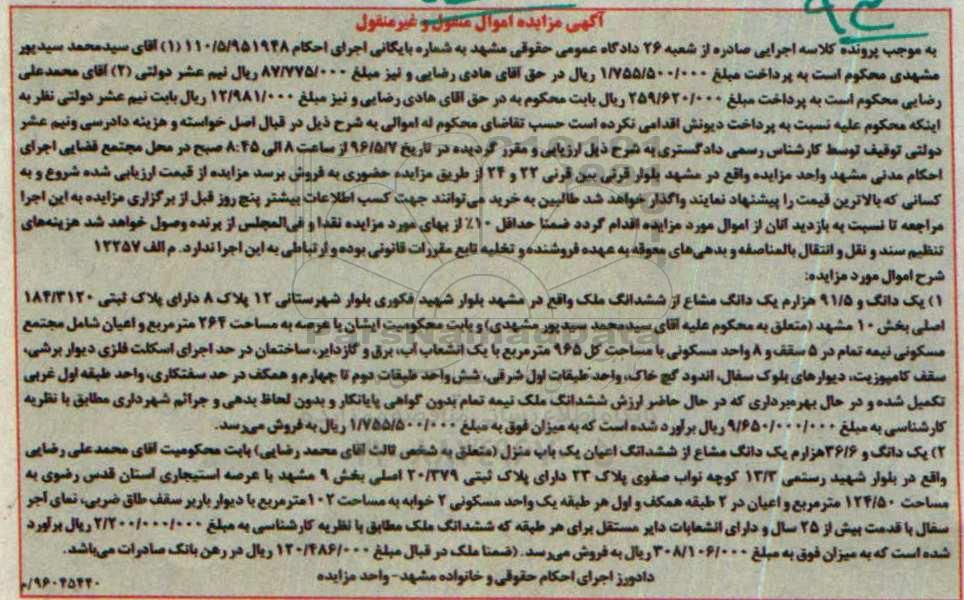 آگهی مزایده اموال منقول و غیرمنقول
به موجب پرونده کلاسه اجرایی صادره از شعبه ۲۶ دادگاه عمومی حقوقی مشهد به شماره بایگانی اجرای احکام ۱۱۰/۵/۹۵۱۹۴۸ (۱) آقای سیدمحمد سیدپور
مشهدی محکوم است به پرداخت مبلغ ۱/۷۵۵/۵۰۰/۰۰۰ ریال در حق آقای هادی رضایی و نیز مبلغ ۸۷/۷۷۵/۰۰۰ ریال نیم عشر دولتی (۲) آقای محمدعلی
رضایی محکوم است به پرداخت مبلغ ۲۵۹/۶۲۰/۰۰۰ ریال بابت محکوم به در حق آقای هادی رضایی و نیز مبلغ ۱۲/۹۸۱/۰۰۰ ریال بابت نیم عشر دولتی نظر به
اینکه محکوم علیه نسبت به پرداخت دیونش اقدامی نکرده است حسب تقاضای محکوم له اموالی به شرح ذیل در قبال اصل خواسته و هزینه دادرسی ونیم عشر
دولتی توقیف توسط کارشناس رسمی دادگستری به شرح ذیل ارزیابی و مقرر گردیده در تاریخ ۹۶/۵/۷ از ساعت ۸ الی ۸:۴۵ صبح در محل مجتمع قضایی اجرای
احکام مدنی مشهد واحد مزایده واقع در مشهد بلوار قرنی بین قرنی ۲۲ و ۲۴ از طریق مزایده حضوری به فروش برسد مزایده از قیمت ارزیابی شده شروع و به
کسانی که بالاترین قیمت را پیشنهاد نمایند واگذار خواهد شد طالبین به خرید می‌توانند جهت کسب اطلاعات بیشتر پنج روز قبل از برگزاری مزایده به این اجرا
مراجعه تا نسبت به بازدید آنان از اموال مورد مزایده اقدام گردد ضمنا حداقل ۱۰٪ از بهای مورد مزایده نقدا و فی‌المجلس از برنده وصول خواهد شد هزینه‌های
تنظیم سند و نقل و انتقال بالمناصفه و بدهی‌های معوقه به عهده فروشنده و تخلیه تابع مقررات قانونی بوده و ارتباطی به این اجرا ندارد. م الف ۱۲۲۵۷
شرح اموال مورد مزایده:
۱) یک دانگ و ۹۱/۵ هزارم یک دانگ مشاع از ششدانگ ملک واقع در مشهد بلوار شهید فکوری بلوار شهرستانی ۱۲ پلاک ۸ دارای پلاک ثبتی ۱۸۴/۳۱۲۰
اصلی بخش ۱۰ مشهد (متعلق به محکوم علیه آقای سیدمحمد سیدپور مشهدی) و بابت محکومیت ایشان با عرصه به مساحت ۲۶۴ مترمربع و اعیان شامل مجتمع
مسکونی نیمه تمام در ۵ سقف و ۸ واحد مسکونی با مساحت کل ۹۶۵ مترمربع با یک انشعاب آب، برق و گاز دایر، ساختمان در حد اجرای اسکلت فلزی دیوار برشی،
سقف کامپوزیت، دیوارهای بلوک سفال، اندود گچ خاک، واحد طبقات اول شرقی، شش واحد طبقات دوم تا چهارم و همکف در حد سفتکاری، واحد طبقه اول غربی
تکمیل شده و در حال بهره‌برداری که در حال حاضر ارزش ششدانگ ملک نیمه تمام بدون گواهی پایانکار و بدون لحاظ بدهی و جرائم شهرداری مطابق با نظریه
کارشناسی به مبلغ ۹/۶۵۰/۰۰۰/۰۰۰ ریال برآورد شده است که به میزان فوق به مبلغ ۱/۷۵۵/۵۰۰/۰۰۰ ریال به فروش می‌رسد.
۲) یک دانگ و ۳۶/۶ هزارم یک دانگ مشاع از ششدانگ اعیان یک باب منزل (متعلق به شخص ثالث آقای محمد رضایی) بابت محکومیت آقای محمدعلی رضایی
واقع در بلوار شهید رستمی ۱۳/۳ کوچه نواب صفوی پلاک ۲۳ دارای پلاک ثبتی ۲۰/۳۷۹ اصلی بخش ۹ مشهد با عرصه استیجاری آستان قدس رضوی به
مساحت ۱۲۴/۵۰ مترمربع و اعیان در ۲ طبقه همکف و اول هر طبقه یک واحد مسکونی ۲ خوابه به مساحت ۱۰۲ مترمربع با دیوار باربر سقف طاق ضربی، نمای آجر
سفال با قدمت بیش از ۲۵ سال و دارای انشعابات دایر مستقل برای هر طبقه که ششدانگ ملک مطابق با نظریه کارشناسی به مبلغ ۲/۲۰۰/۰۰۰/۰۰۰ ریال برآورد
شده است که به میزان فوق به مبلغ ۳۰۸/۱۰۶/۰۰۰ ریال به فروش می‌رسد. (ضمنا ملک در قبال مبلغ ۱۲۰/۴۸۶/۰۰۰ ریال در رهن بانک صادرات می‌باشد.
دادورز اجرای احکام حقوقی و خانواده مشهد - واحد مزایده
۹۶۰۴۵۴۴۰/م
ParsNamadData